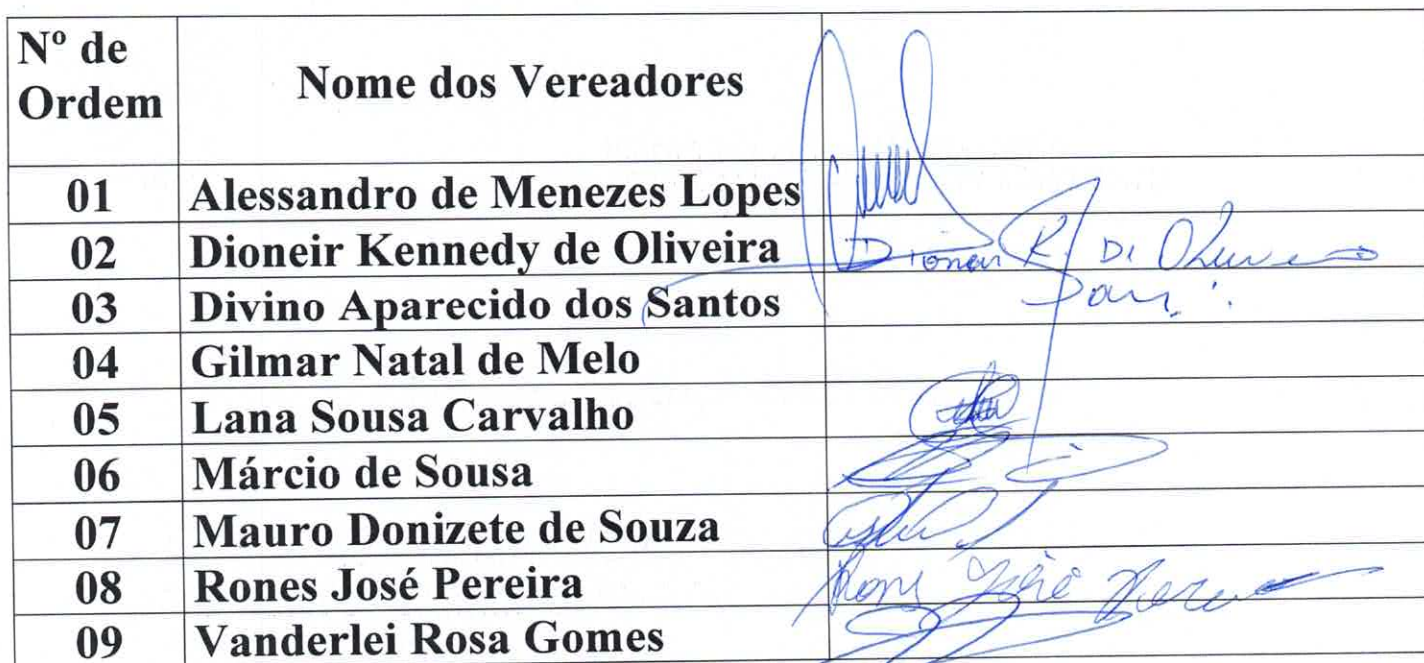 Nº de
Ordem
Nome dos Vereadores
01 Alessandro de Menezes Lopes
02 Dioneir Kennedy de Oliveira
03 Divino Aparecido dos Santos
04 Gilmar Natal de Melo
05 Lana Sousa Carvalho
06 Márcio de Sousa
07 Mauro Donizete de Souza
08 Rones José Pereira José
09 Vanderlei Rosa Gomes